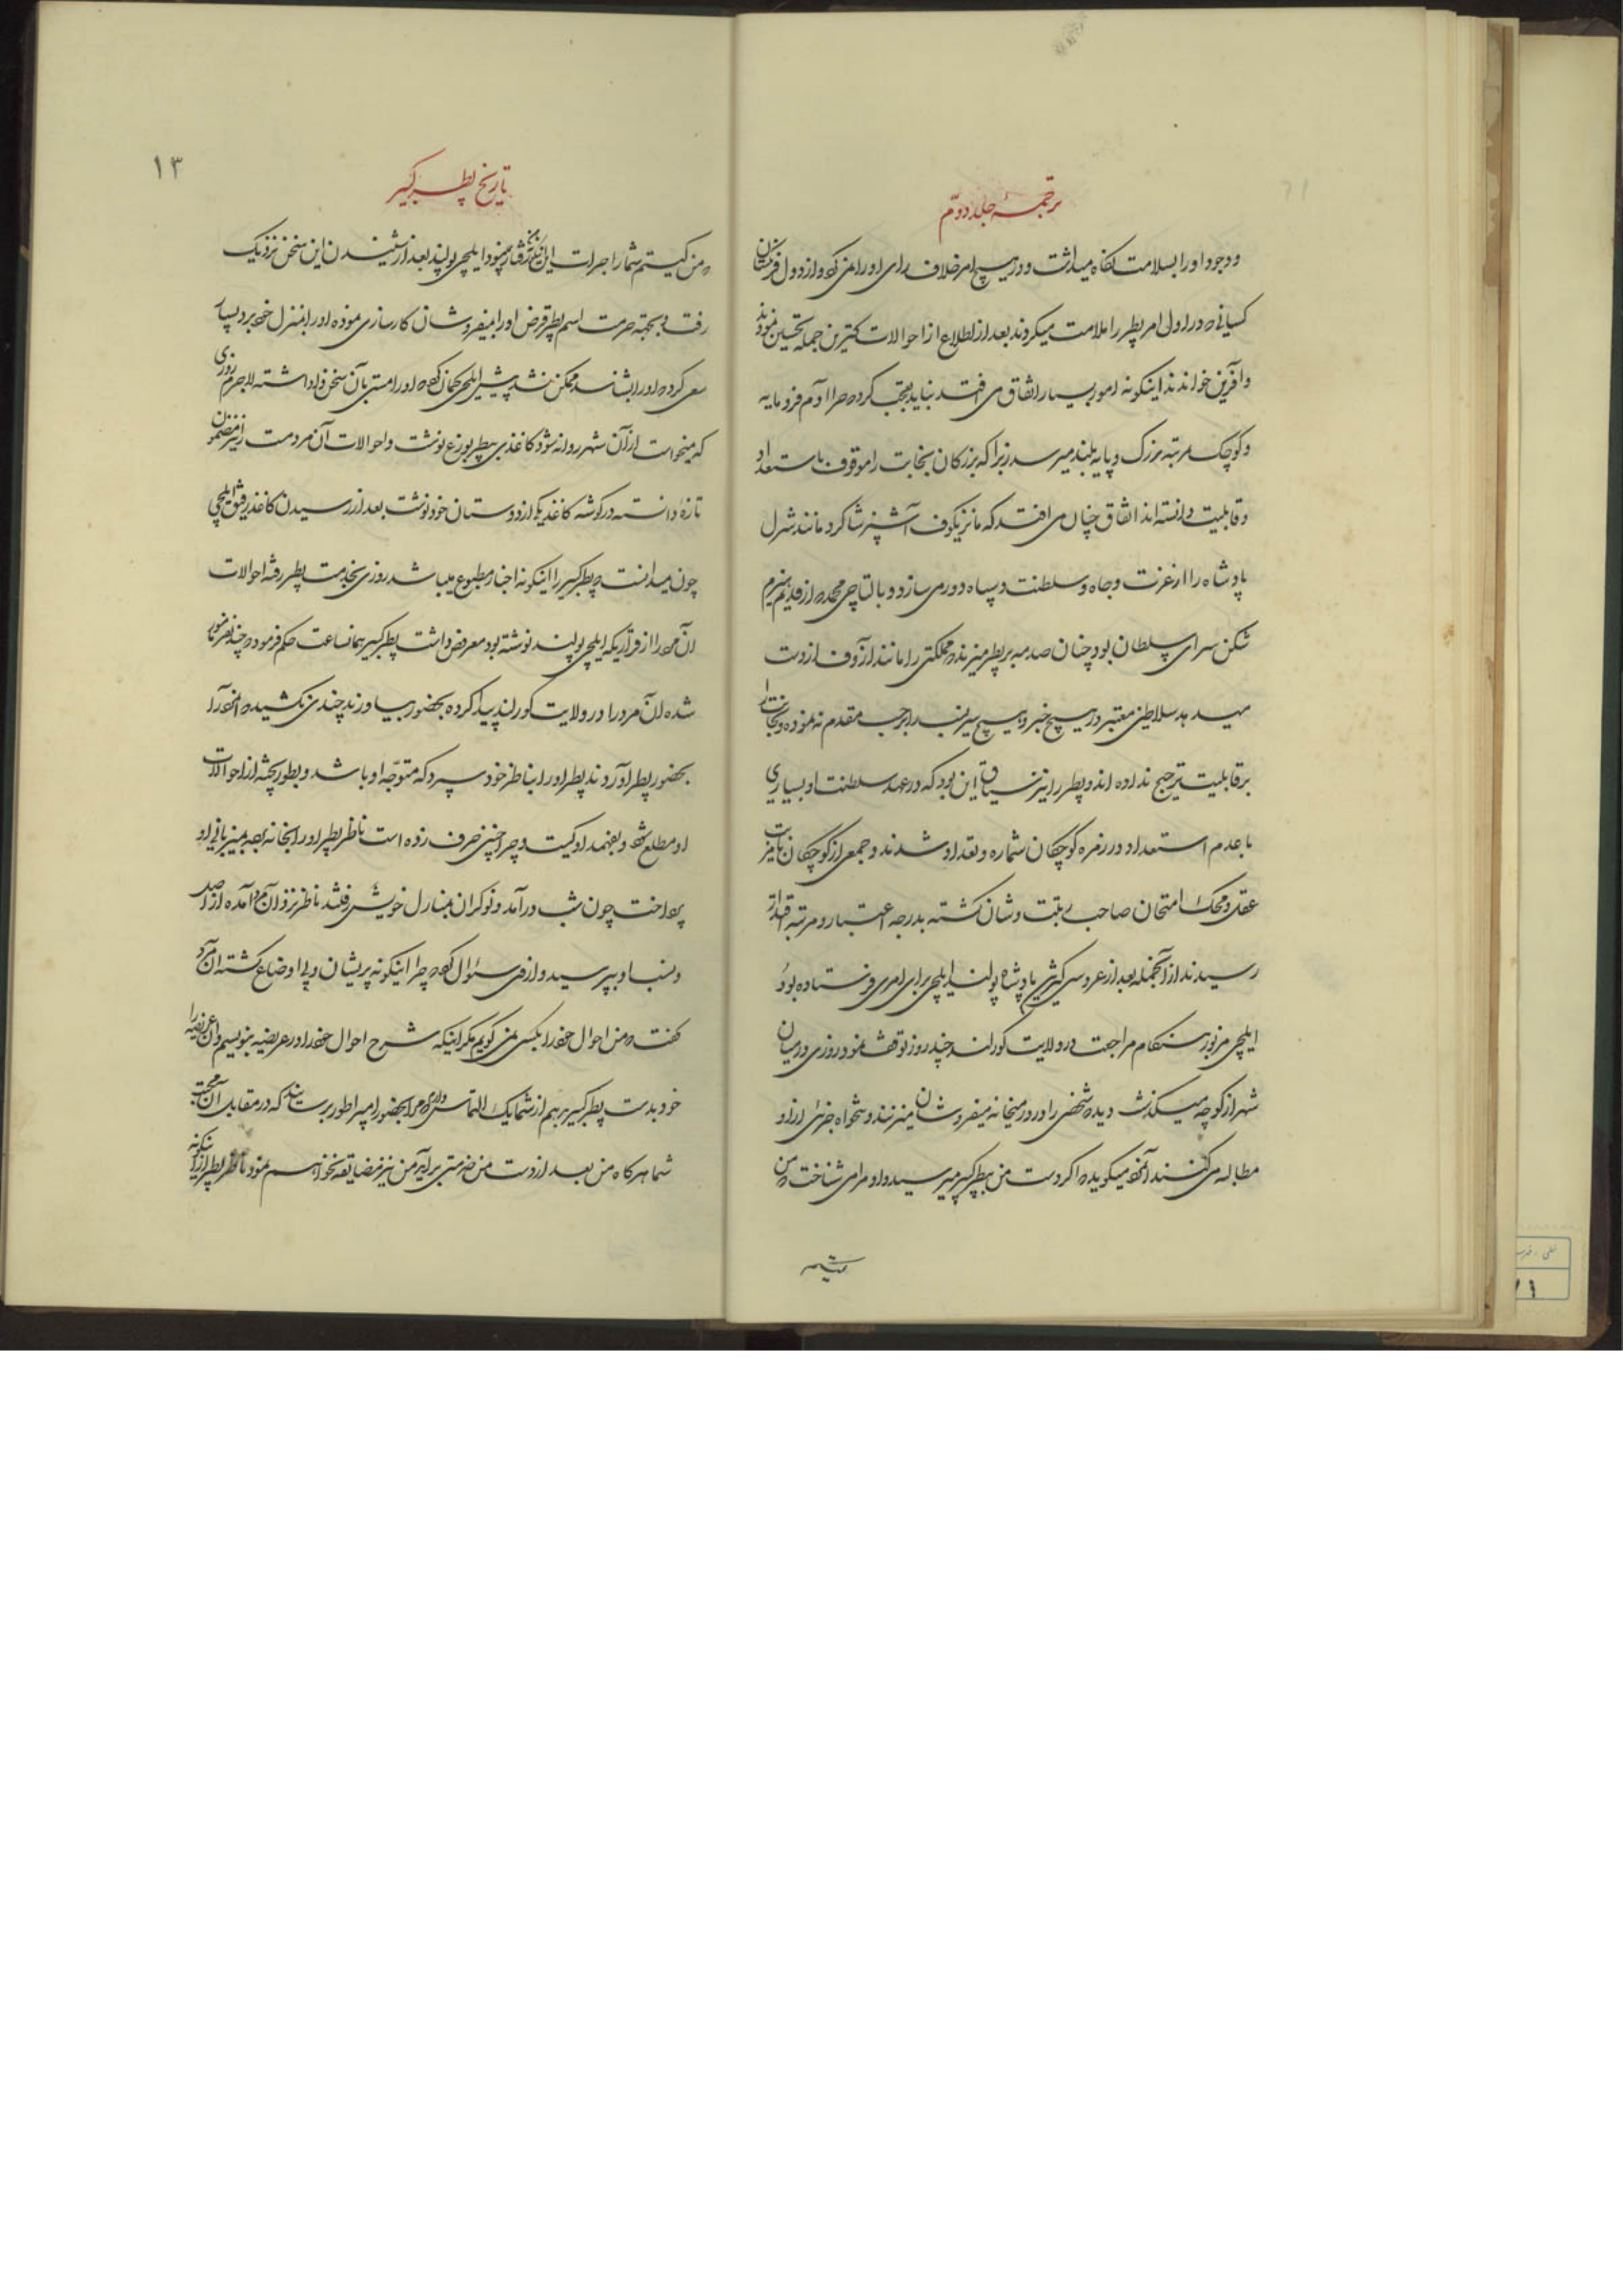 ترجمهٔ جلد دوّم
و وجود او را بسلامت نگاه میداشت و در هیچ امر خلاف رای او را نمی کرد و از دول فرنگستان
کسانی که در اول امر پطر را ملامت میکردند بعد از اطلاع از احوالات کترین جمله تحسین نمودند
و آفرین خواندند اینگونه امور بسیار اتفاق می افتد نباید تعجب کرد که چرا آدم فرومایه
و کوچک مرتبه بزرک و پایه بلند میرسد زیرا که بزرکان نجابت را موقوف باستعداد
و قابلیت دانسته اند اتفاق چنان می افتد که مانزیکوف آشپز شاکرد مانند شرل
پادشاه را از عزت و جاه و سلطنت و سپاه دور می سازد و بالتاچی محمد که از قدیم هیزم
شکن سرای سلطان بود چنان صدمه بر پطر میزند که مملکتی را مانند ازوف از دست
میدهد سلاطین معتبر در هیچ خبر و هیچ سیر نسب را بر حسب مقدم ننموده و نجابت را
بر قابلیت ترجیح نداده اند و پطر را نیز سیاق این بود که در عهد سلطنت او بسیاری
با عدم استعداد در زمره کوچکان شماره و تعداد شدند و جمعی از کوچکان
عقل و محک امتحان صاحب رتبت و شان کشته بدرجه اعتبار و مرتبه اقتدار
رسیدند از آنجمله بعد از عروسی کترین پادشاه پولند ایلچی برای امری فرستاده بود
ایلچی مزبور هنکام مراجعت در ولایت کورلند چند روز توقف نمود روزی در میان
شهر از کوچه میگذشت دید که شخصی را در در میخانه میفروشان میزنند و تنخواه جزئی از او
مطالبه می کنند آنمرد میگوید که اکر دست من بپطر کبیر میرسید و او مرا می شناخت که من
کیستم
۱۳
تاریخ پطر کبیر
که من کیستم شما را جرات این رفتار نبود ایلچی پولند بعد از شنیدن این سخن نزدیک
رفت و بجهة حرمت اسم پطر قرض او را بمیفروشان کارسازی نموده او را بمنزل خود برد بسیار
سعی کرد که او را بشناسد ممکن نشد پیش ایلچی کمان کرد که او را مستی بآن سخن واداشته لاجرم روزی
که میخواست از آن شهر روانه شود کاغذی بپطربورغ نوشت و احوالات آن مردمست را نیز مضمون
تازه دانسته در کوشه کاغذ بیکی از دوستان خود نوشت بعد از رسیدن کاغذ رفیق ایلچی
چون میدانست که پطر کبیر را اینکونه اخبار مطبوع میباشد روزی بخدمت پطر رفته احوالات
آن مرد را از قراریکه ایلچی پولند نوشته بود معروض داشت پطر کبیر همانساعت حکم فرمود که چند نفر مامور
شده آن مرد را در ولایت کورلند پیدا کرده بحضور بیاورند چندی نکشید که آنمرد را
بحضور پطر آوردند پطر او را بناظر خود سپرد که متوجّه او باشد و بطور پخته از احوالات
او مطلع شود و بفهمد او کیست و چرا چنین حرف زده است ناظر پطر او را بخانه برده بمیزبانی او
پرداخت چون شب درآمد و نوکران بمنازل خویش رفتند ناظر نزد آن مرد آمده از اصل
و نسب او بپرسید و از وی سئوال کرد که چرا اینکونه پریشان و بی اوضاع کشته آن مرد
کفت که من احوال خود را بکسی نمی کویم مکر اینکه شرح احوال خود را در عریضه بنویسم و آن عریضه را
خود بدست پطر کبیر بدهم از شما یک التماس دارم که مرا بحضور امپراطور برسانید که در مقابل آن محبت
شما هرکاه من بعد از دست من خدمتی برآید من نیز مضایقه نخواهم نمود ناظر پطر از اینکونه